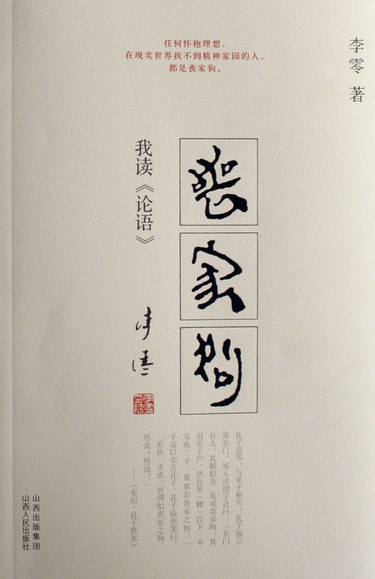 任何怀抱理想，
在现实世界找不到精神家园的人，
都是丧家狗。
李零 著
喪家狗
我读《论语》
孔子适郑，与弟子相失，孔子独立
郭东门。郑人或谓子贡曰：「东门
有人，其颡似尧，其项类皋陶，其
肩类子产，然自要（腰）以下，不
及禹三寸，累累若丧家之狗。」
子贡以实告孔子。孔子欣然笑曰：
「形状，末也。而谓似丧家之狗，
然哉！然哉！」
——《史记·孔子世家》
山西出版集团
山西人民出版社